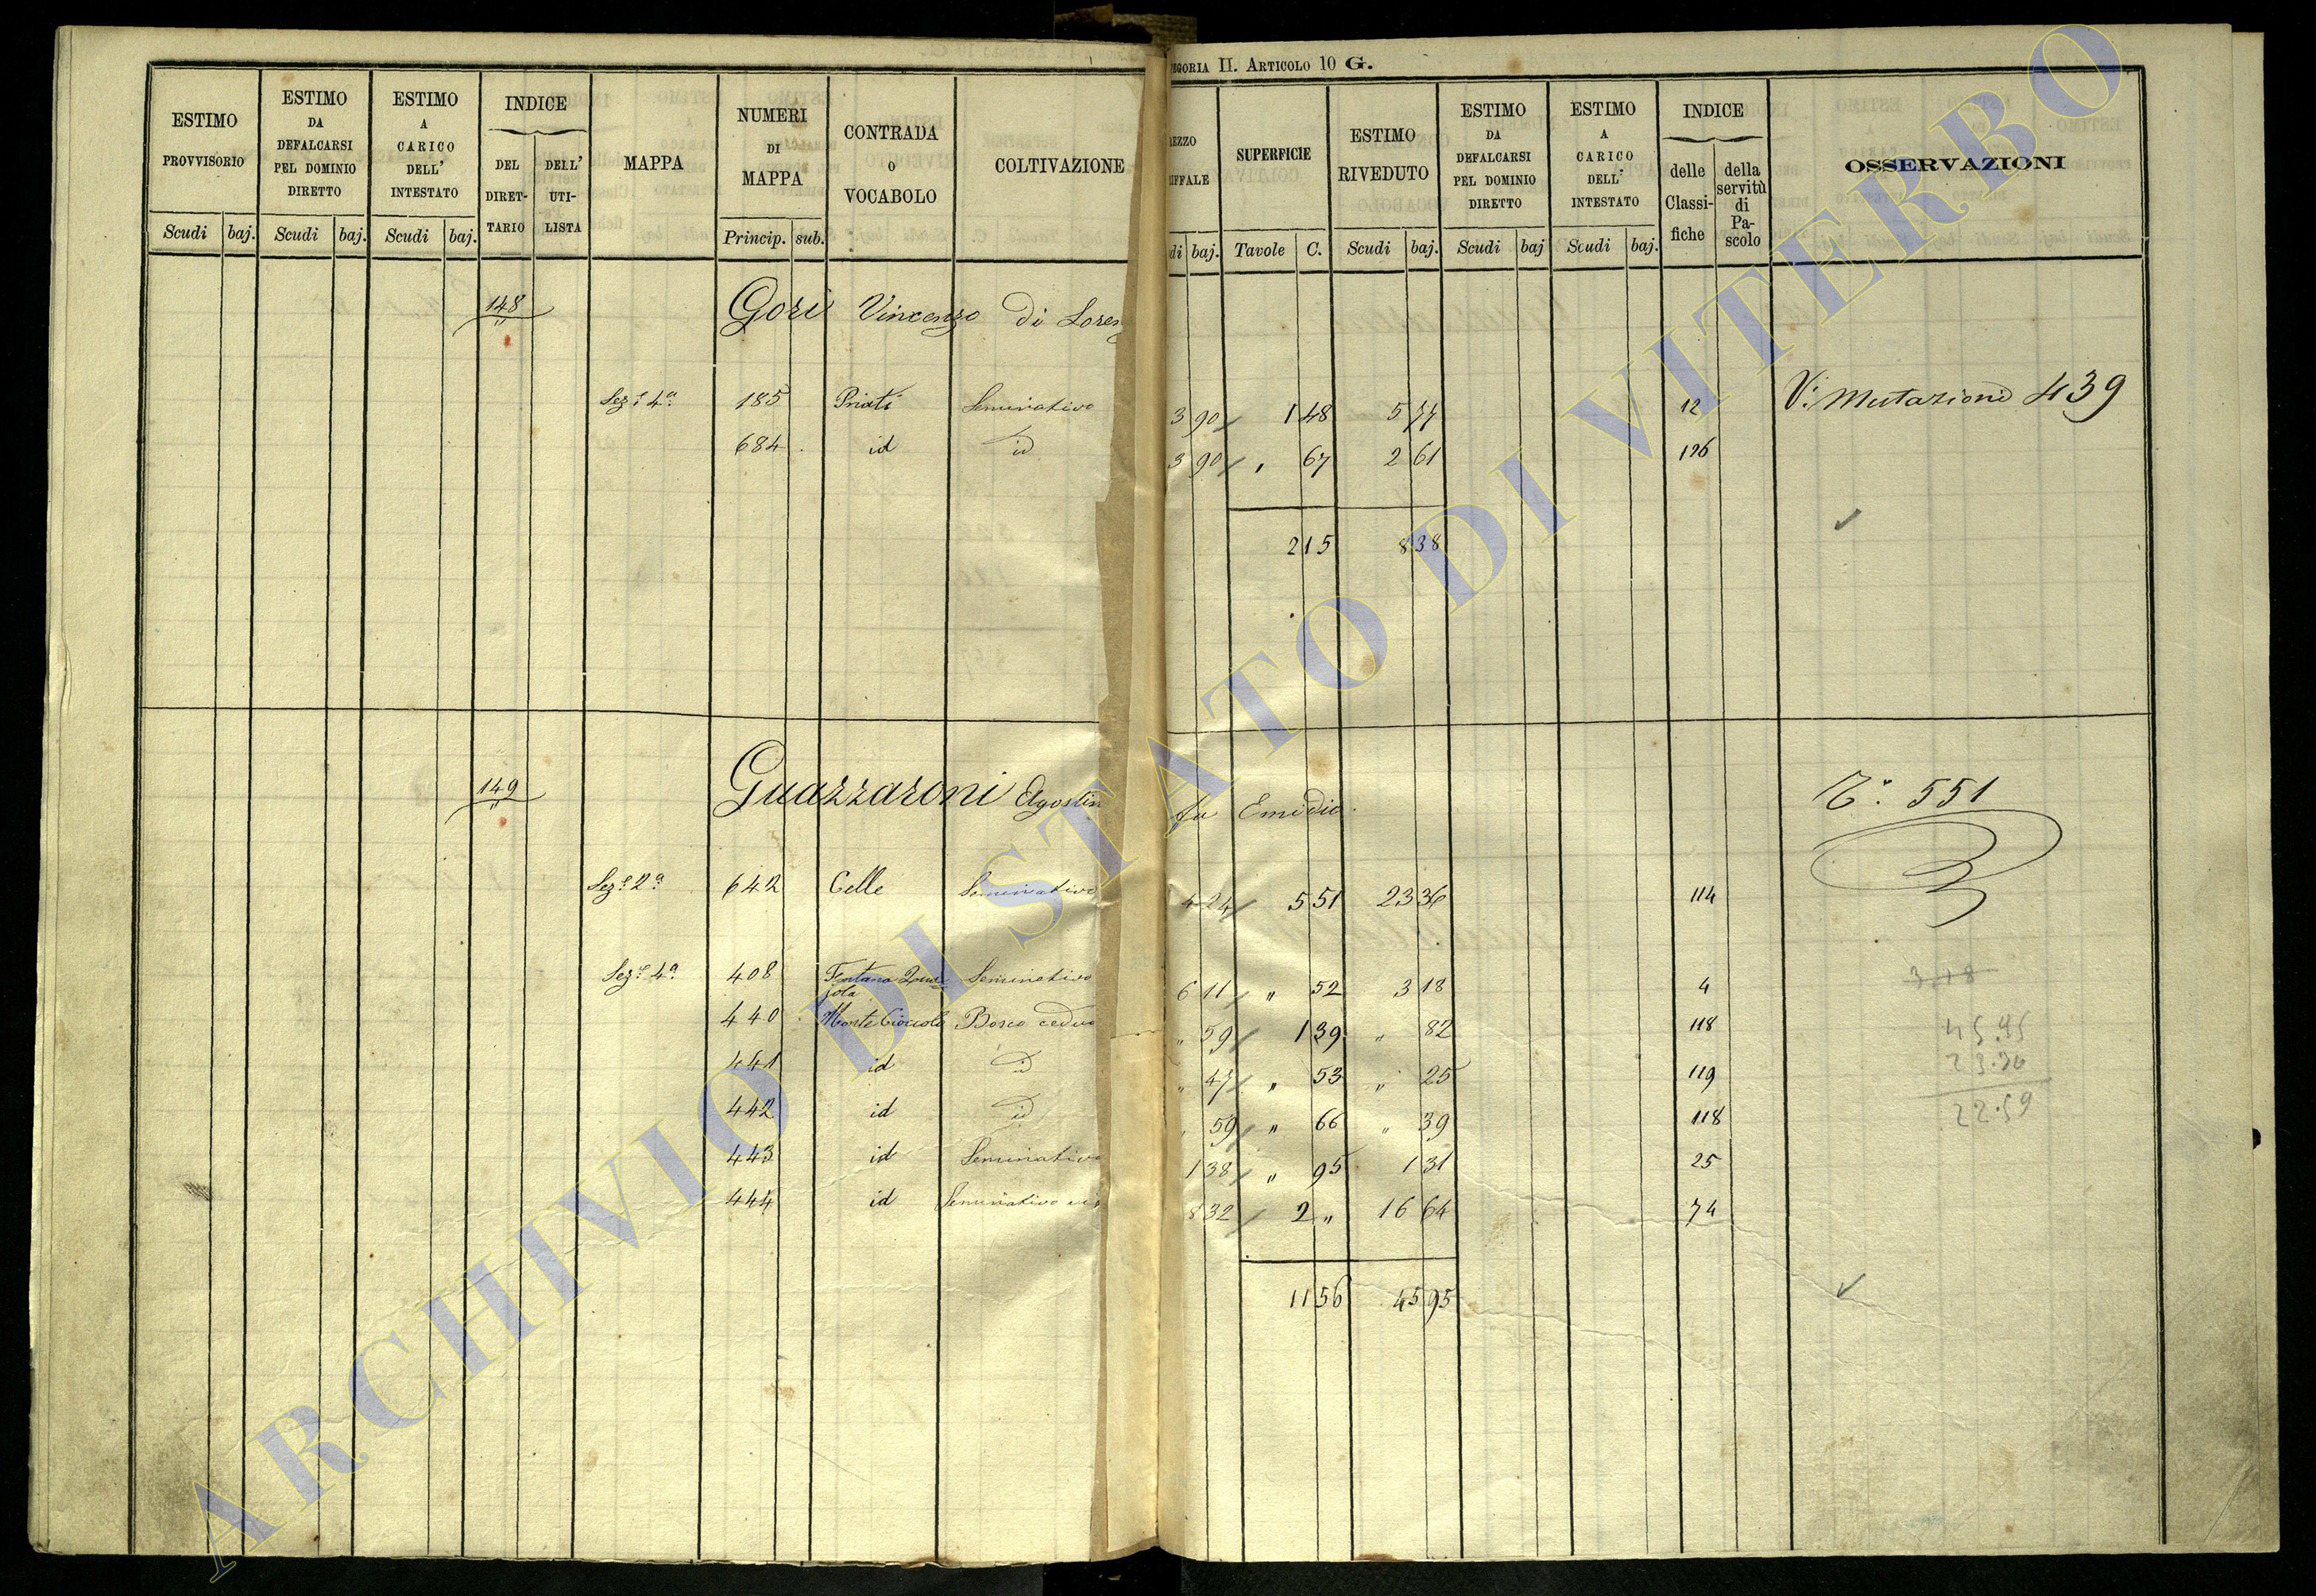 EGORIA II. ARTICOLO 10 G.
ESTIMO PROVVISORIO Scudi baj.
ESTIMO DA DEFALCARSI PEL DOMINIO DIRETTO Scudi baj.
ESTIMO A CARICO DELL' INTESTATO Scudi baj.
INDICE DEL DIRET-TARIO DELL' UTI-LISTA
MAPPA
NUMERI DI MAPPA Princip. sub.
CONTRADA O VOCABOLO
COLTIVAZIONE
EZZO IFFALE di baj.
SUPERFICIE Tavole C.
ESTIMO RIVEDUTO Scudi baj.
ESTIMO DA DEFALCARSI PEL DOMINIO DIRETTO Scudi baj
ESTIMO A CARICO DELL' INTESTATO Scudi baj.
INDICE delle Classi-fiche della servitù di Pa-scolo
OSSERVAZIONI
148 Gori Vincenzo di Loren
Sez.e 4a 185 Priati Seminativo 3 90 1 48 5 77 12 V: Mutazioni 439
684 id id 3 90 , 67 2 61 126
2 15 8 38
149 Guazzaroni Agostin fu Emidio. 551
Sez.e 2a 642 Celle Seminativo 4 24 5 51 23 36 114
Sez.e 4a 408 Fontana Seminativo 6 11 " 52 3 18 4
440 Monte Bosco ceduo " 59 1 39 " 82 118
441 id id " 47 " 53 " 25 119
442 id id 59 " 66 " 39 118
443 id Seminativo 1 38 " 95 1 31 25
444 id Seminativo 8 32 2 " 16 64 74
11 56 45 95
3.18
45.95
23.36
22.59
ARCHIVIO DI STATO DI VITERBO